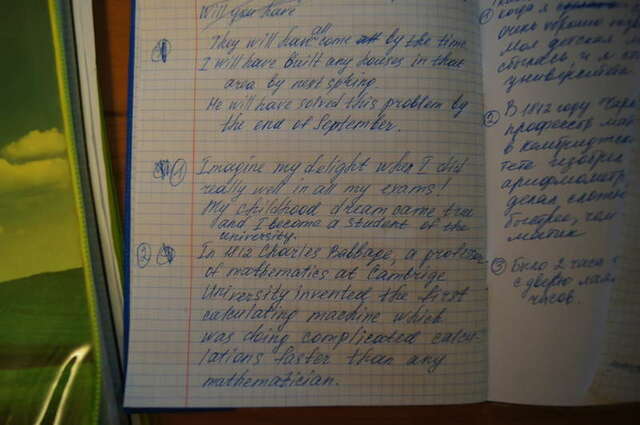 Will you have
They will have all come by the time
I will have built any houses in that
area by next spring.
He will have solved this problem by
the end of September.
1 Imagine my delight when I did
really well in all my exams!
My childhood dream came true
and I become a student of the
university.
2 In 1812 Charles Babbage, a professor
of mathematics at Cambrige
University invented the first
calculating machine which
was doing complicated calcu-
lations faster than any
mathematician.
1 когда я
очень хорошо
Моя детская
сбылась, и я
университета
2 В 1812 году Чар
профессор мат
в кембриджско
тете изобрел
арифмометр
делал сложн
быстрее, чем
матик
3 Было 2 часа
с дверью
часов.